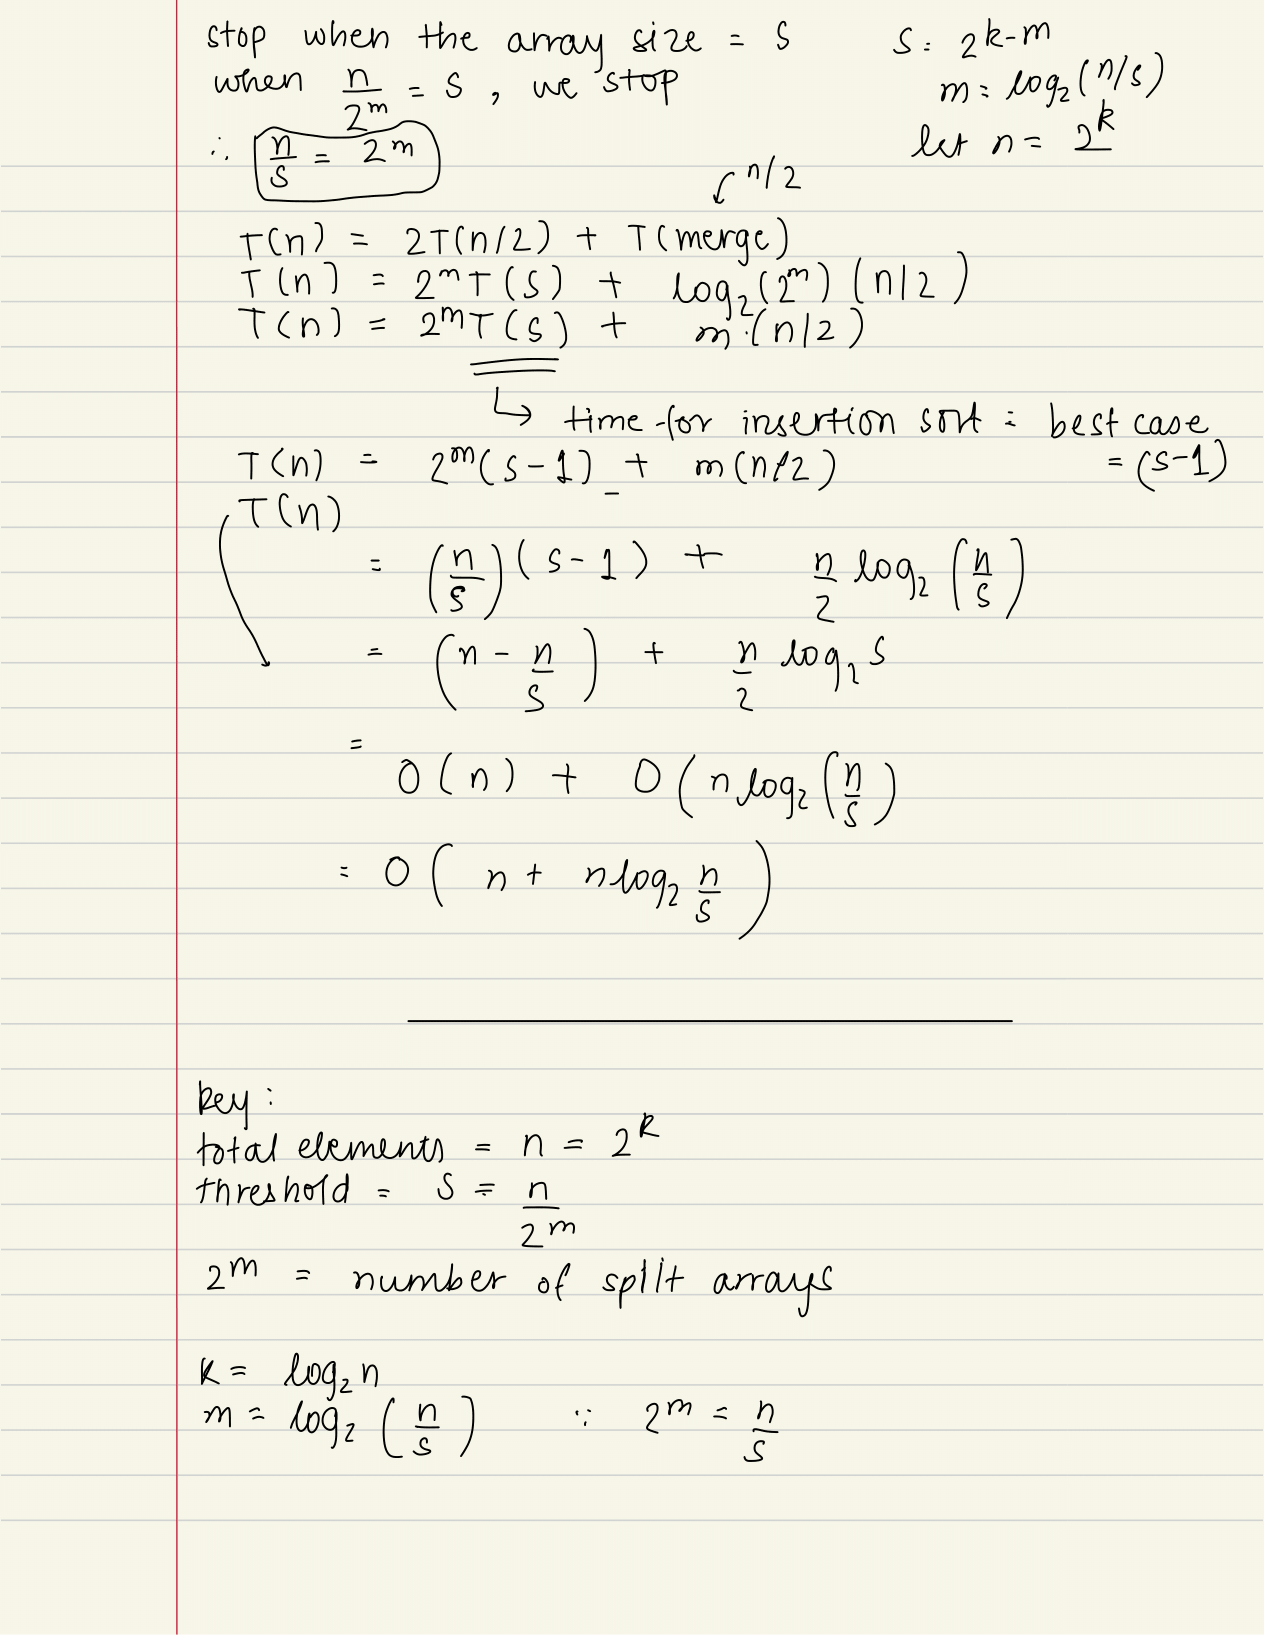 stop when the array size = S
S = 2^(k-m)
when n/2^m = S, we stop
m = log₂(n/s)
let n = 2^k
∴ n/S = 2^m
n/2
T(n) = 2T(n/2) + T(merge)
T(n) = 2^m T(S) + log₂(2^m) (n/2)
T(n) = 2^m T(S) + m·(n/2)
↳ time for insertion sort = best case
= (s-1)
T(n) = 2^m (s-1) + m(n/2)
T(n)
= (n/s)(s-1) + n/2 log₂(n/s)
= (n - n/s) + n/2 log₂ s
= O(n) + O(n log₂(n/s)
= O(n + n log₂ n/s)
key:
total elements = n = 2^k
threshold = S = n/2^m
2^m = number of split arrays
k = log₂n
m = log₂(n/s) ∵ 2^m = n/s